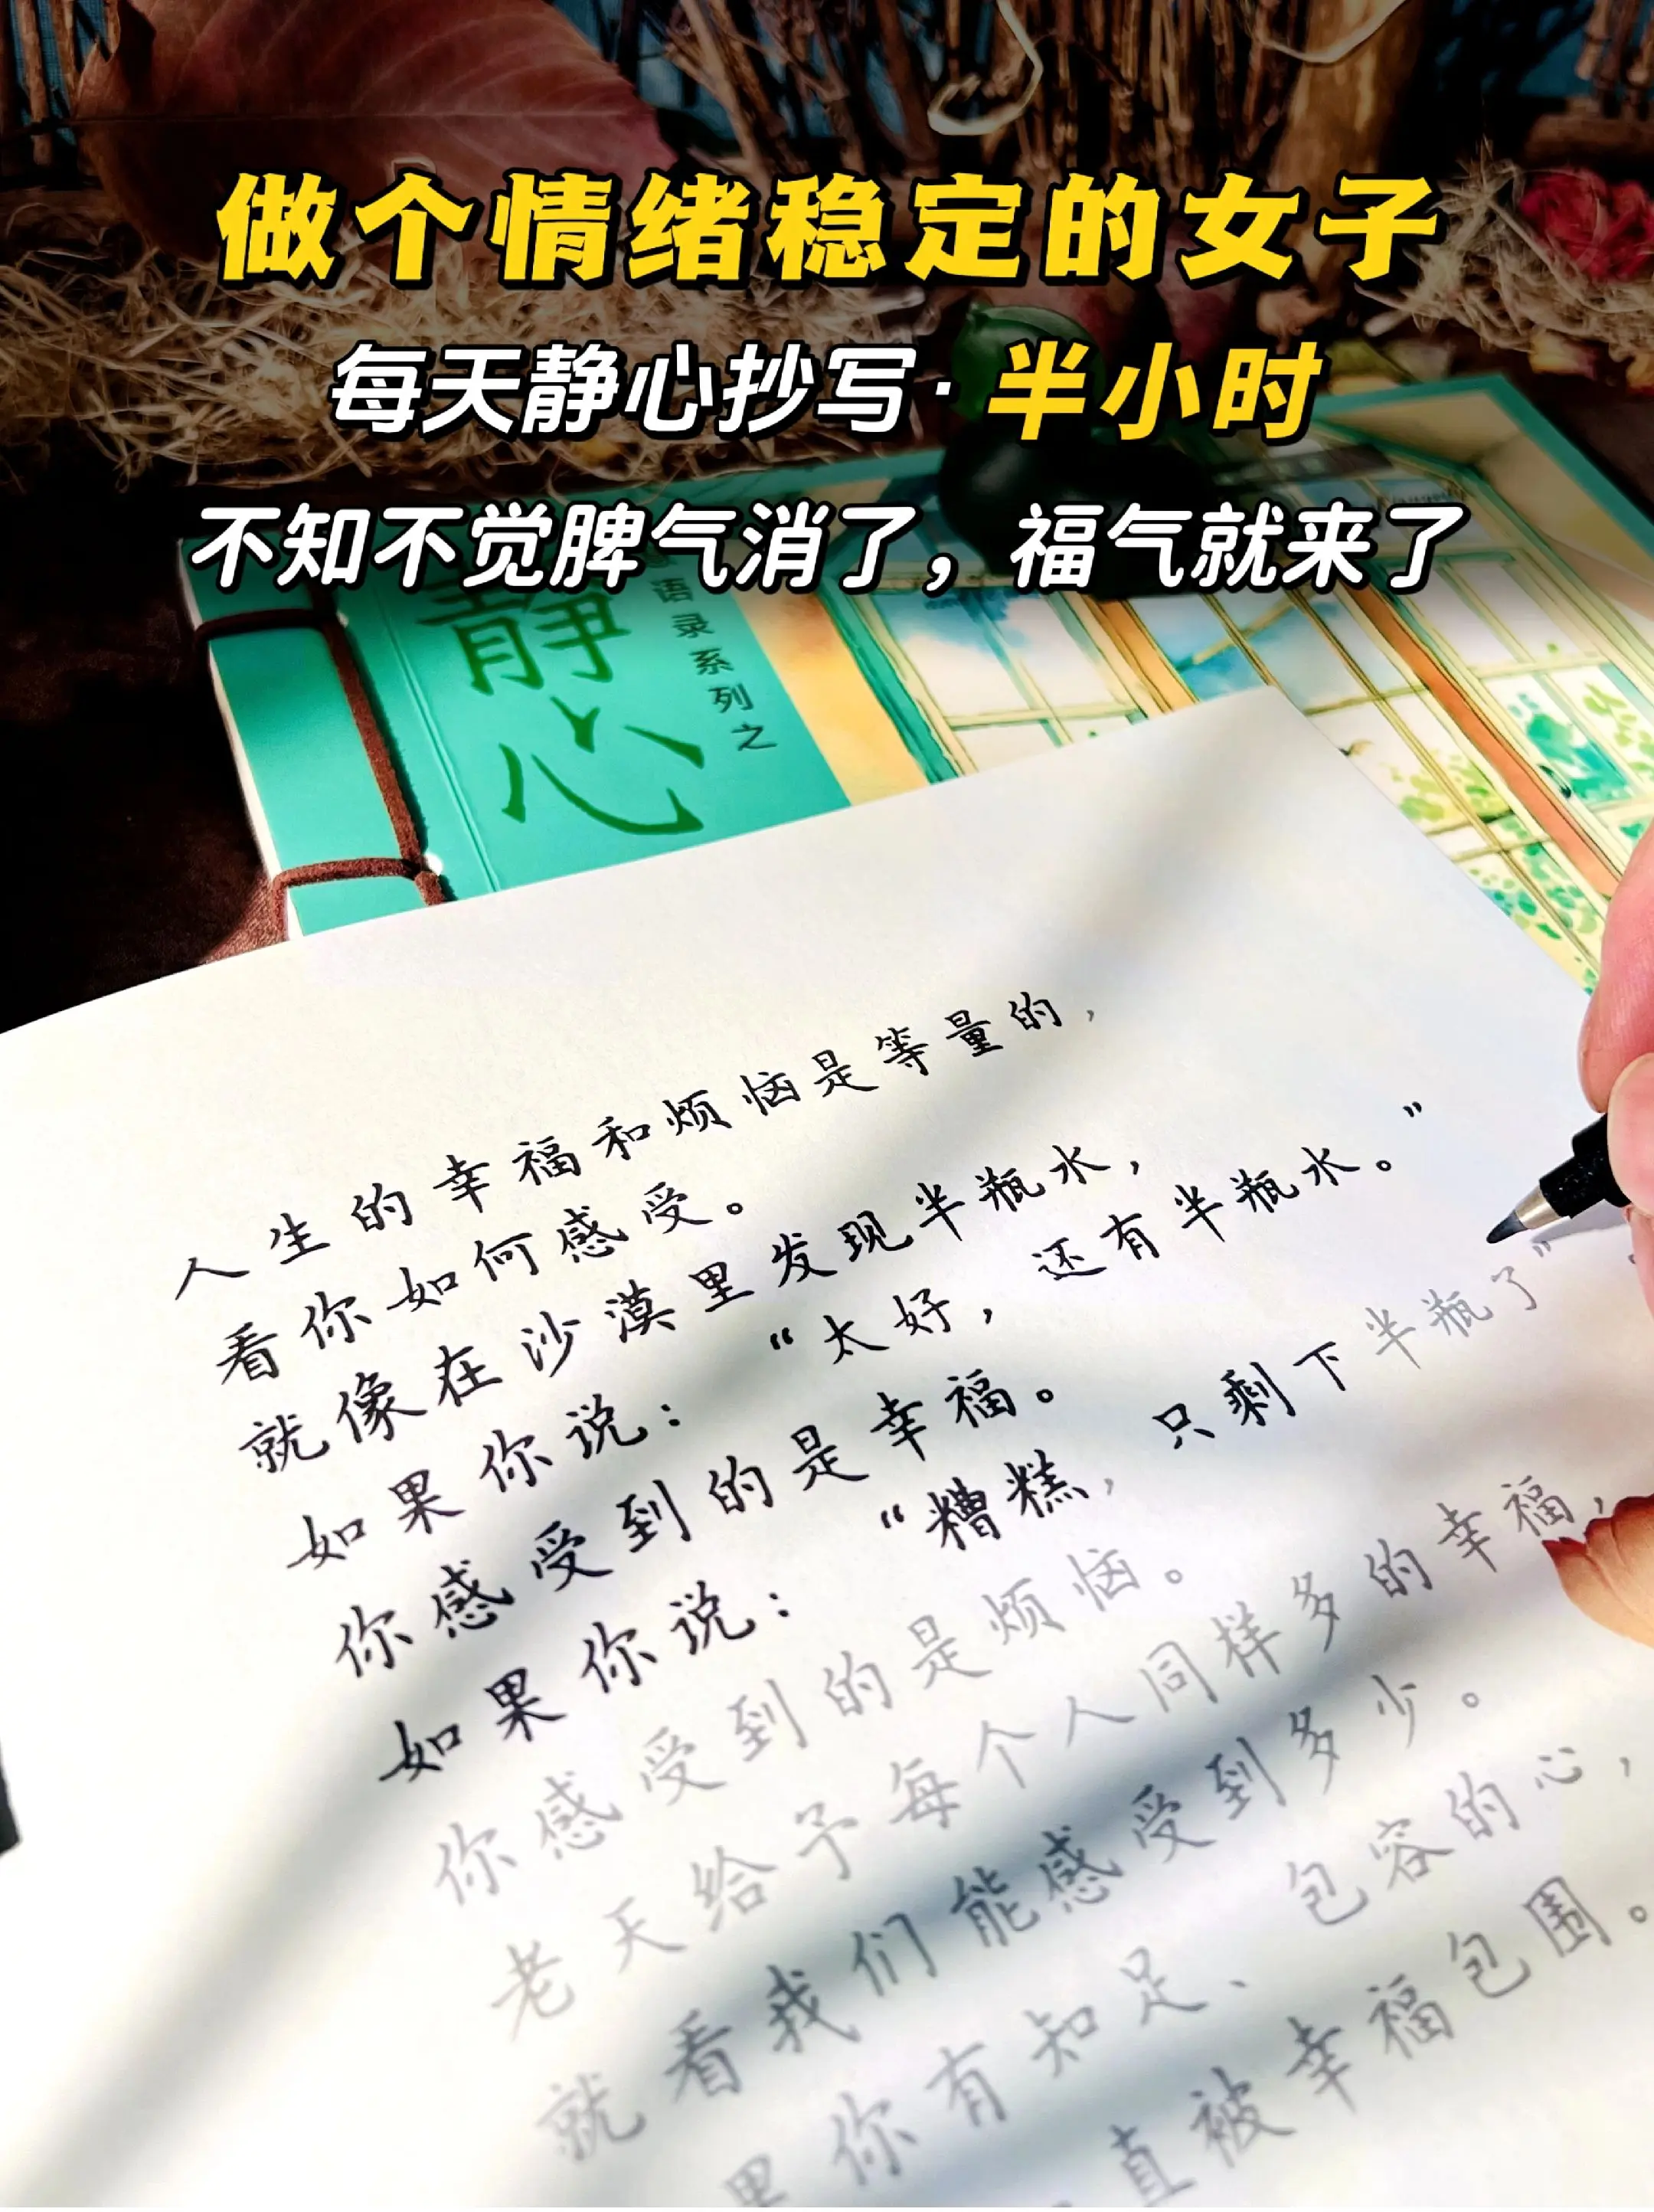 做个情绪稳定的女子
每天静心抄写·半小时
不知不觉脾气消了，福气就来了
静心
语录系列之
人生的幸福和烦恼是等量的，
看你如何感受。
就像在沙漠里发现半瓶水，
如果你说：“太好，还有半瓶水。”
你感受到的是幸福。
如果你说：“糟糕，只剩下半瓶了”
你感受到的是烦恼。
老天给予每个人同样多的幸福，
就看我们能感受到多少。
果你有知足、包容的心，
直被幸福包围。